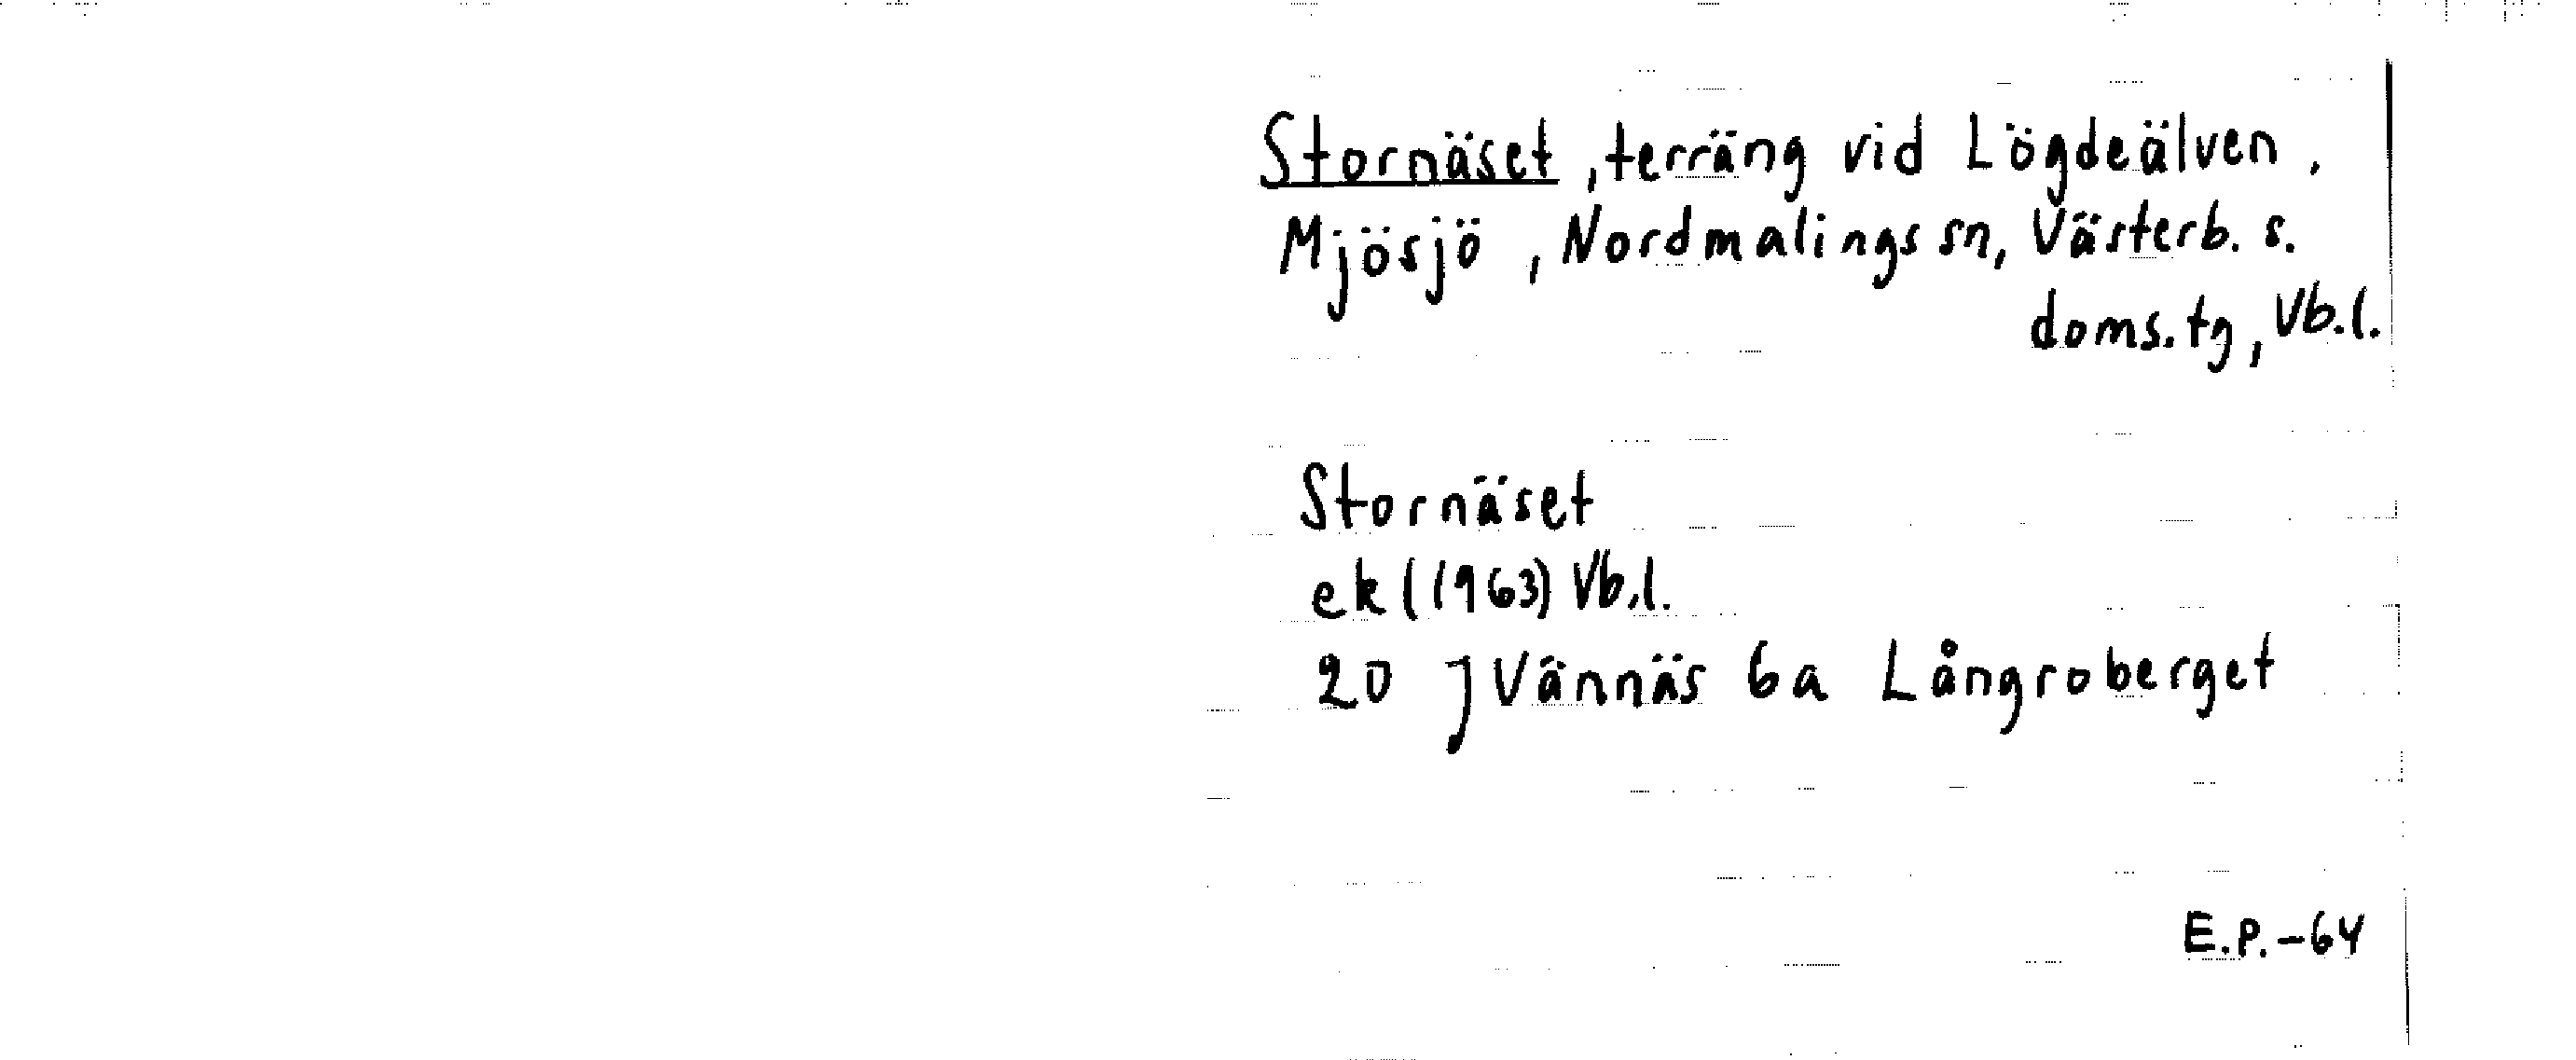 Stornäset, terräng vid Lögdeälven,
Mjösjö, Nordmalings sn, Västerb. s.
doms.tg, Vb.l.
Stornäset
ek (1963) Vb.l.
20 J Vännäs 6a Långroberget
E.P.-64